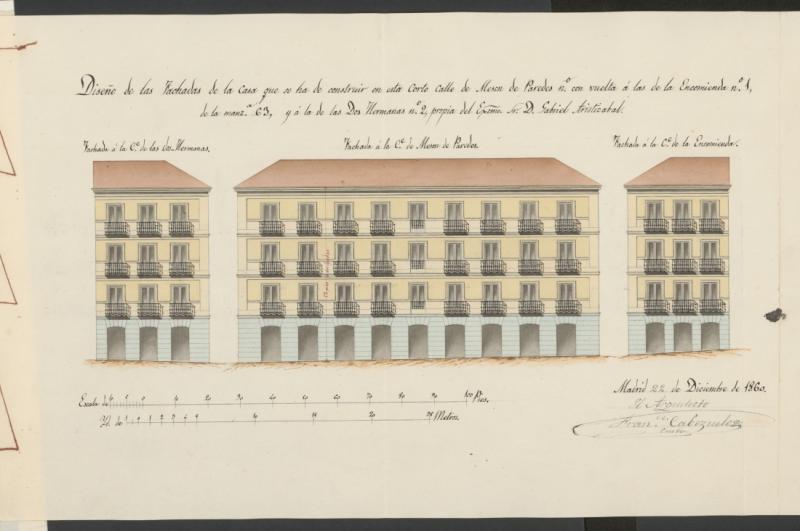 Diseño de las Fachadas de la Casa que se ha de construir en esta Corte calle de Meson de Paredes n.º con vuelta á las de la Encomienda n.º 1,
de la manz.ª 63, y á la de las Dos Hermanas n.º 2, propia del Exmo. Sr. D. Gabriel Aristizabal.
Fachada á la C.e de las dos Hermanas.
Fachada á la C.e de Meson de Paredes.
Fachada á la C.e de la Encomienda.
Escala de
100 Pies.
Yd. de
25 Metros
Madrid 22 de Diciembre de 1860.
El Arquitecto
Fran.co Cabezuelo